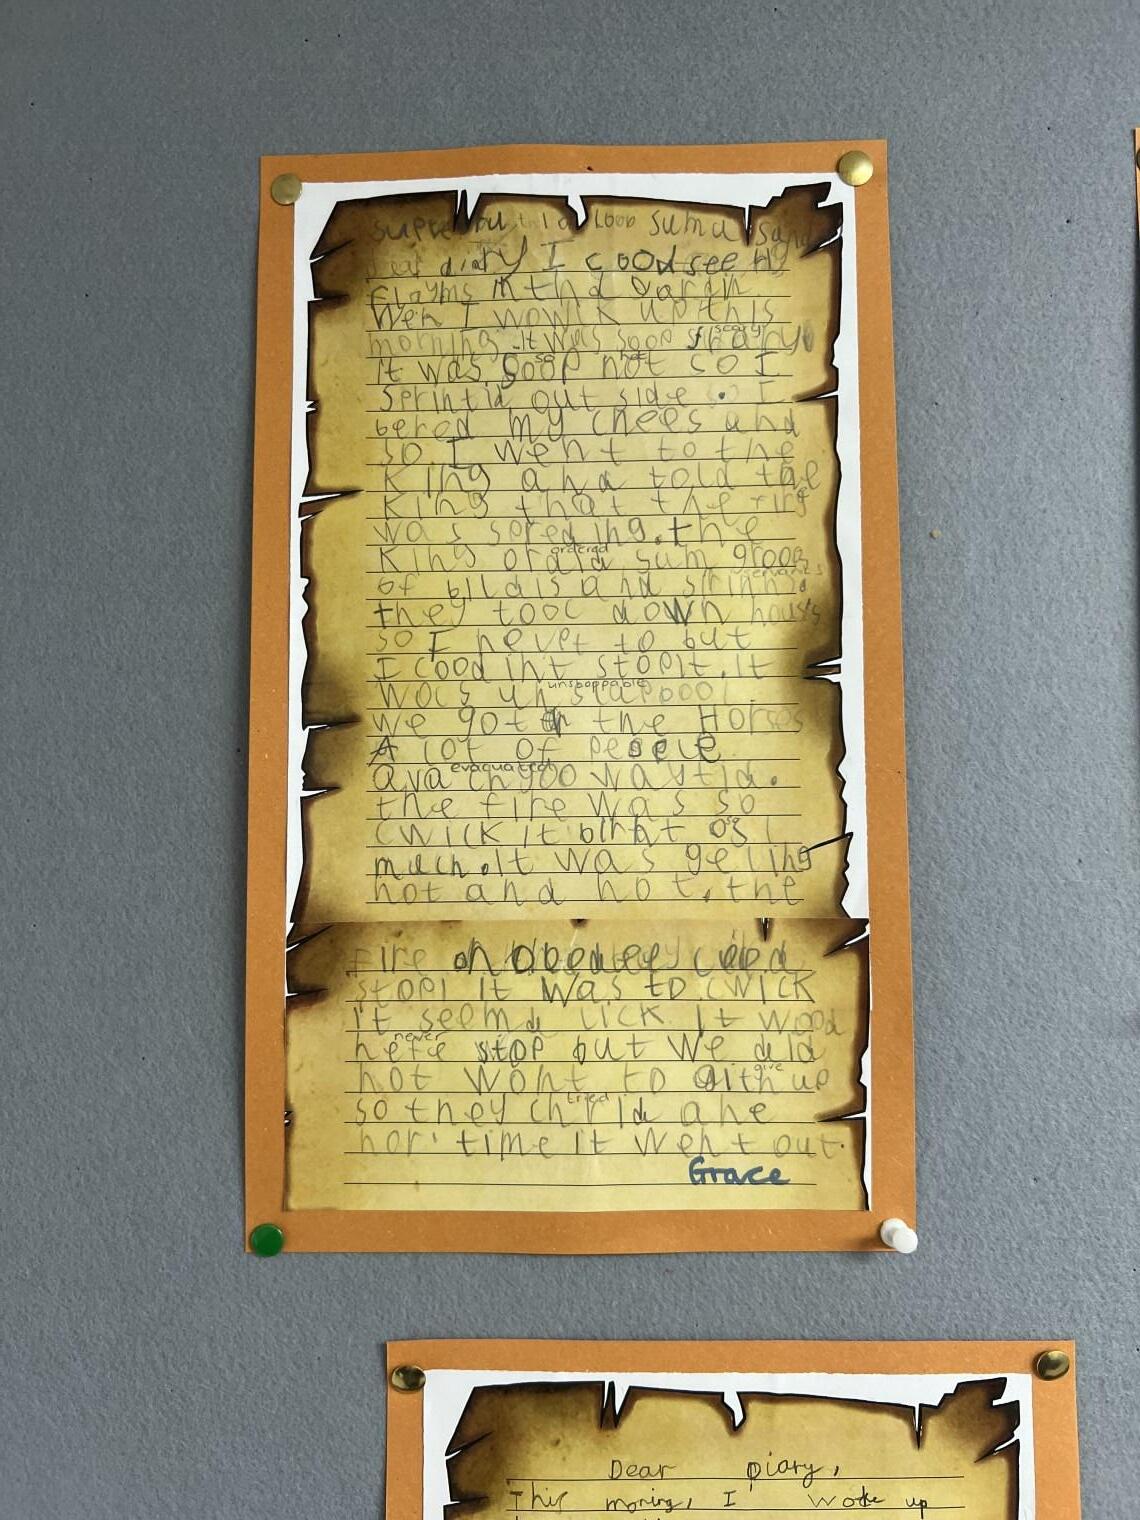 suma
dear diary I cood see
flayms
Wen I wowk up this
morning. it was soop scary
it was soop so hot hot so I
sprintid out side. so I
bered my chees and
so I went to the
King and told the
King that the
was spreding. the
King ordered sum groop
of bildis and servants
they tooc down houses
so I to but
I cood int stop it. it
was un unstoppable
we got the Horses
A lot of
evaquated
the fire was so
cwick it birnt so
much. It was geting
hot and hot. the
fire
stop! it was to cwick
it seemd lick it wood
never stop but we did
not wont to give up
so they tried ane
nor time it went out.
Grace
Dear Diary,
This morning, I woke up